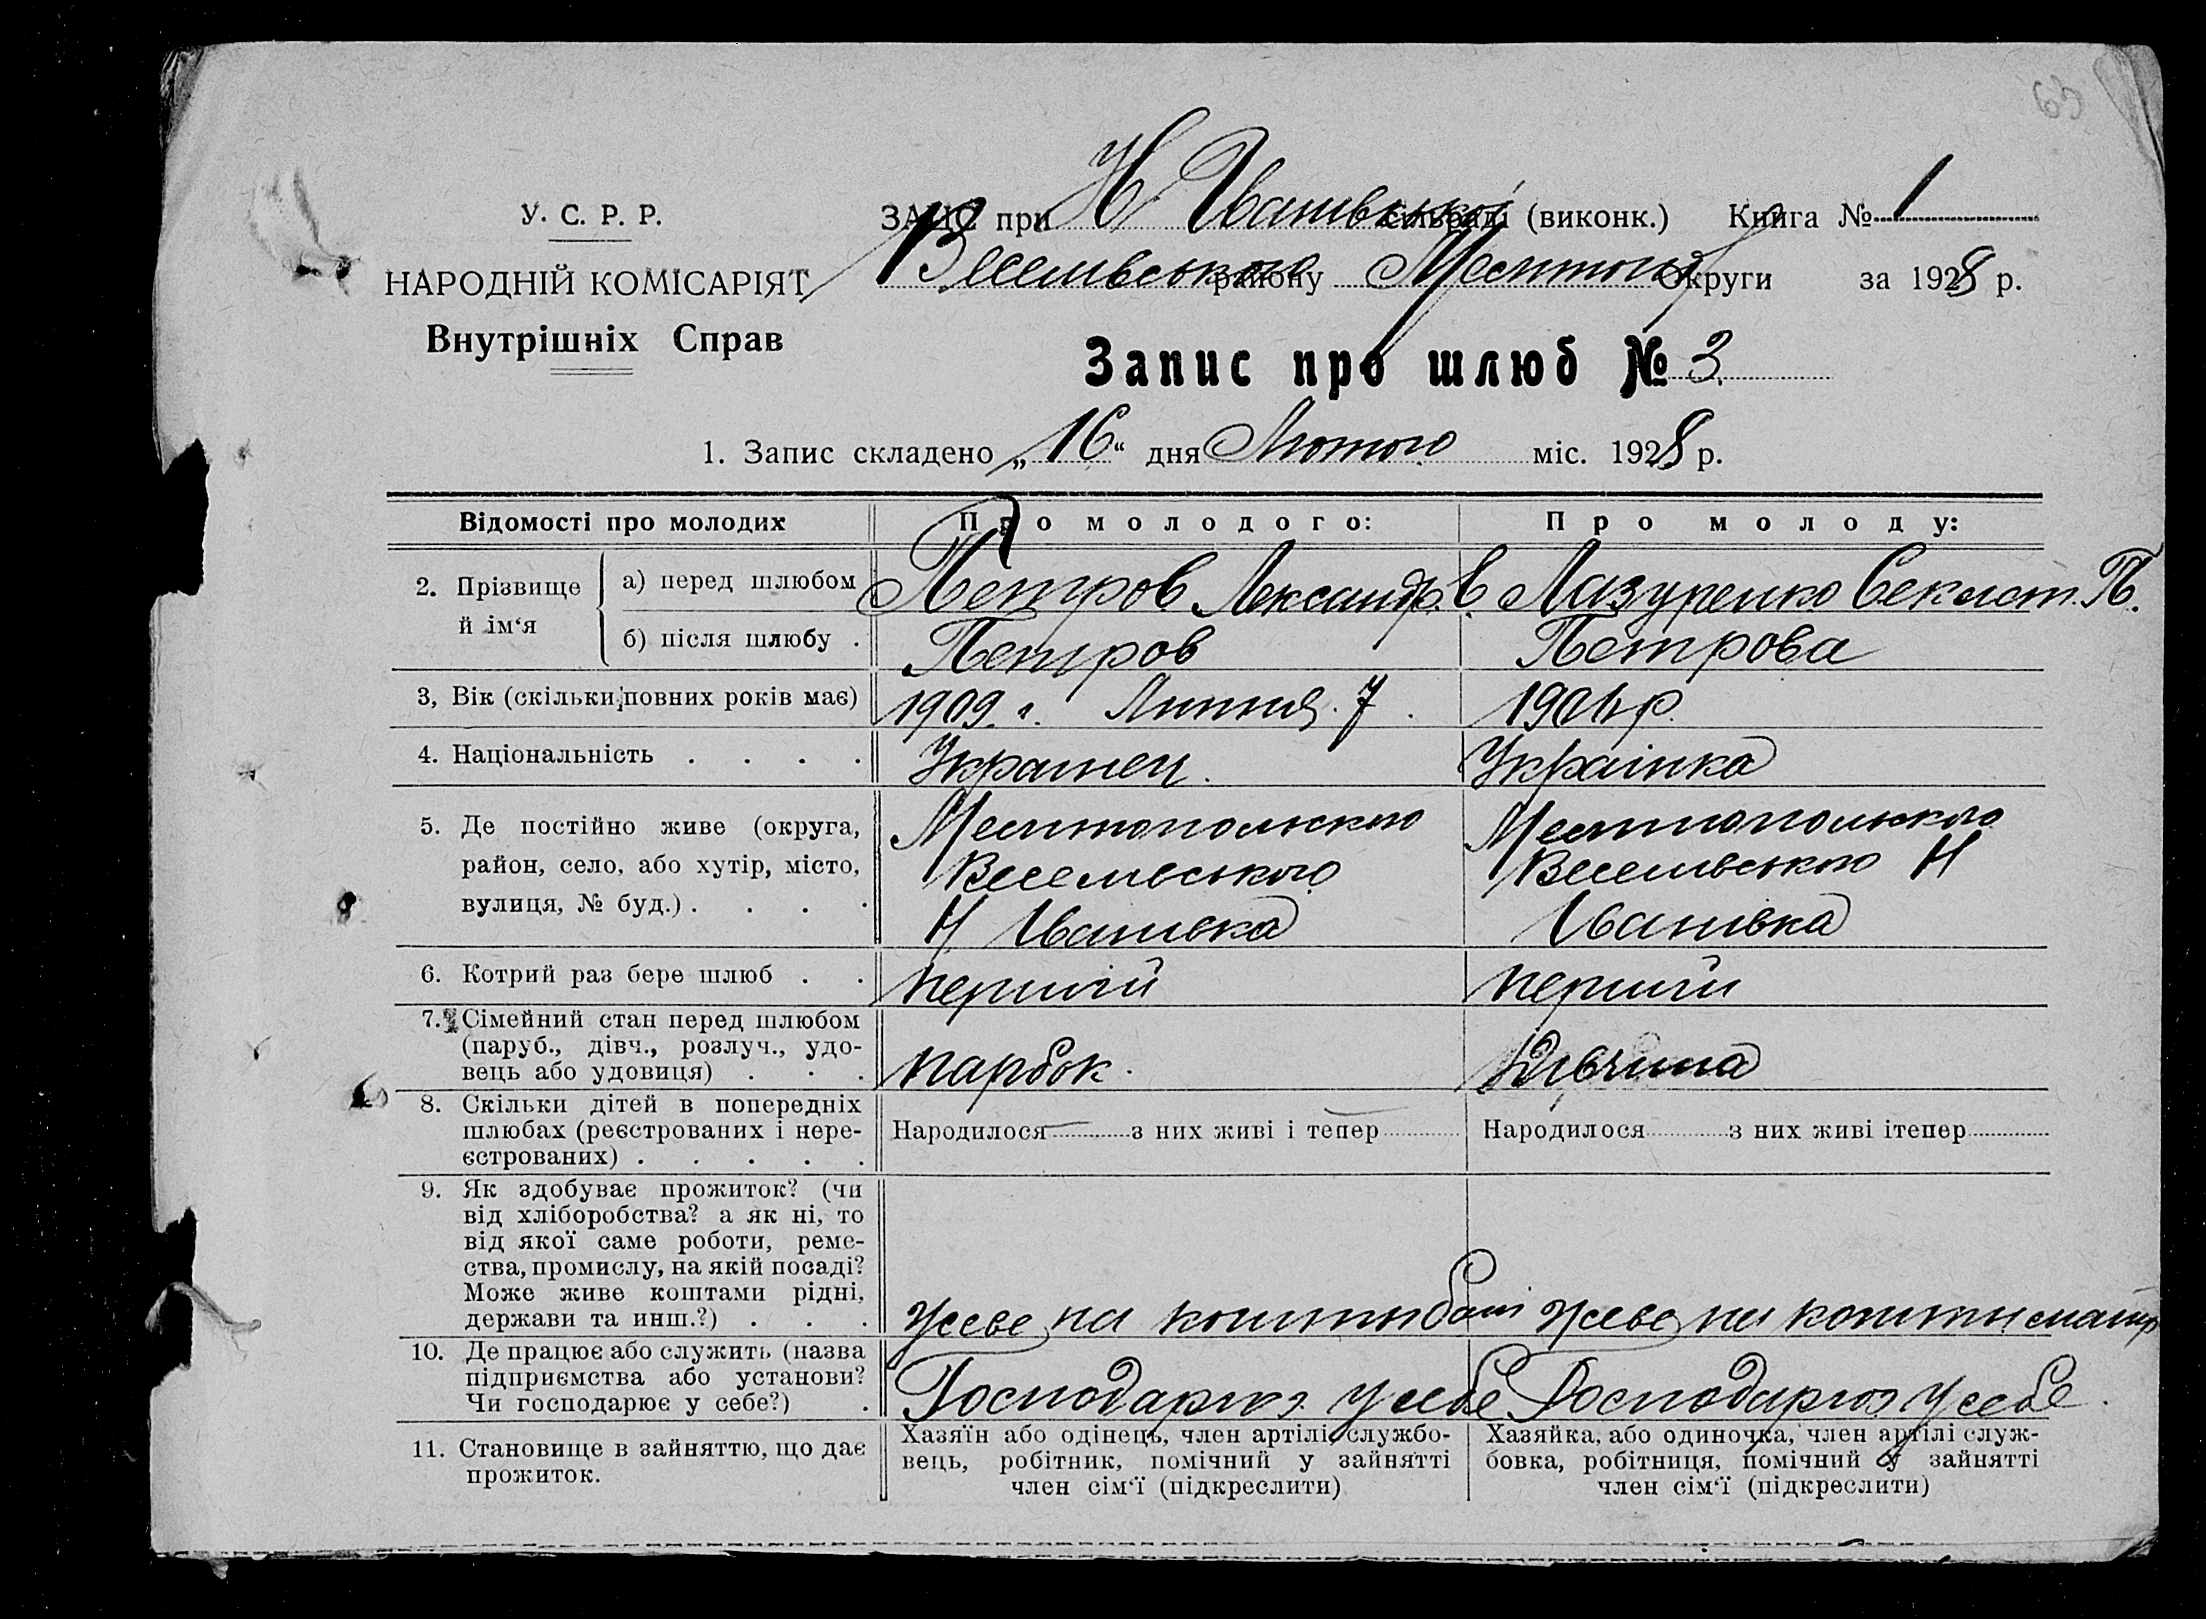 63
У. С. Р. Р.
НАРОДНІЙ КОМІСАРІЯТ
Внутрішніх Справ
ЗАЦС при Н Іванівській сільраді (виконк.) Книга № 1
Веселівського району Мелітоп Округи за 1928 р.
Запис про шлюб № 3
1. Запис складено „16“ дня Лютого міс. 1928 р.
Відомості про молодих Про молодого: Про молоду:
2. Прізвище й ім‘я
а) перед шлюбом Петров Лександр. Є. Лазуренко Секлет. П.
б) після шлюбу . Петров Петрова
3, Вік (скільки повних років має) 1909 г. Липня. 7. р.
4. Національність . . . . Украинец. Українка
5. Де постійно живе (округа,
район, село, або хутір, місто,
вулиця, № буд.) . . . .
Мелитопольского
Веселивського
Н Іванивка
Мелитопольского
Веселивського Н
Іванівка
6. Котрий раз бере шлюб . . перший перший
7. Сімейний стан перед шлюбом
(паруб., дівч., розлуч., удо-
вець або удовиця) . . .
парбок. Дівчина
8. Скільки дітей в попередніх
шлюбах (реєстрованих і нере-
єстрованих) . . . . .
Народилося — з них живі і тепер Народилося з них живі ітепер
9. Як здобуває прожиток? (чи
від хліборобства? а як ні, то
від якої саме роботи, реме-
ства, промислу, на якій посаді?
Може живе коштами рідні,
держави та инш.?) . . .
живе на кошти живе на кошти
10. Де працює або служить (назва
підприємства або установи?
Чи господарює у себе?) .
Господарює у себе Господарює у себе.
11. Становище в зайняттю, що дає
прожиток.
Хазяїн або одінець, член артілі, службо-
вець, робітник, помічний у зайнятті
член сім‘ї (підкреслити)
Хазяйка, або одиночка, член артілі служ-
бовка, робітниця, помічний у зайнятті
член сім‘ї (підкреслити)